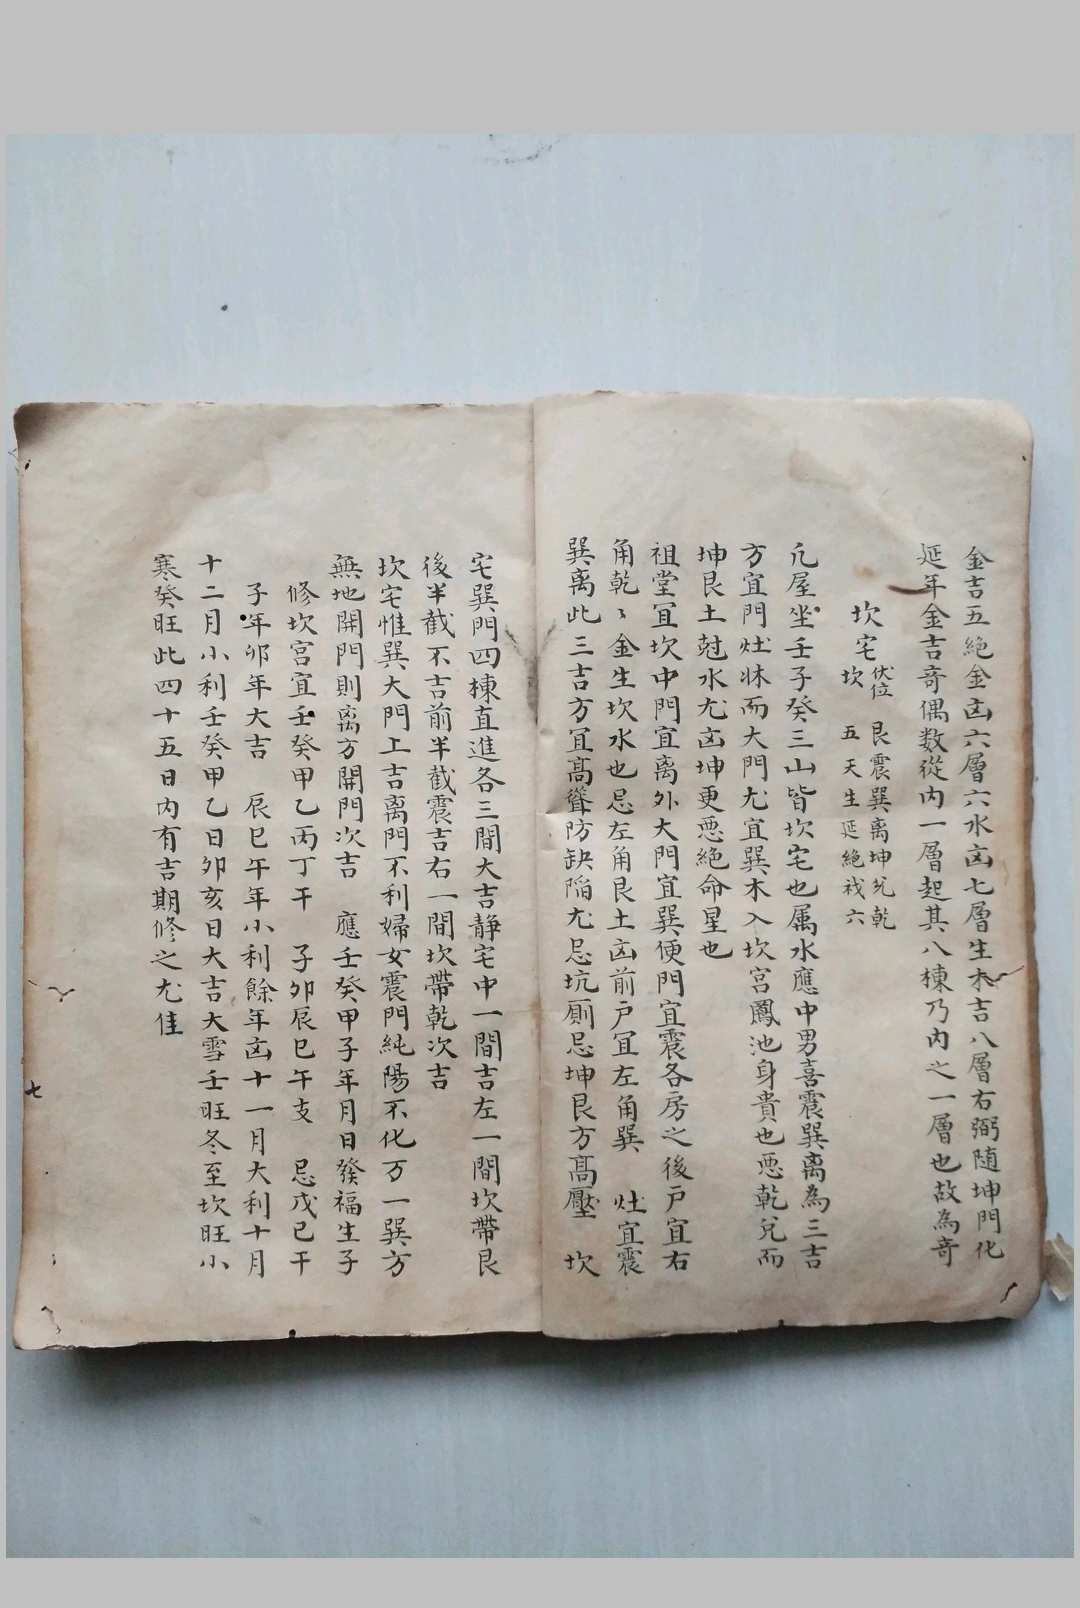 金吉五絕金凶六層六水凶七層生木吉八層右弼随坤門化
延年金吉竒偶数從内一層起其八棟乃内之一層也故為竒
坎宅
伏位
坎
艮震巽离坤兌乾
五天生延絕禍六
凢屋坐壬子癸三山皆坎宅也属水應中男喜震巽离為三吉
方宜門灶床而大門尤宜巽木入坎宮鳳池身貴也恶乾兌而
坤艮土尅水尤凶坤更恶絕命星也
祖堂冝坎中門宜离外大門宜巽便門宜震各房之後户宜右
角乾乀金生坎水也忌左角艮土凶前户冝左角巽 灶宜震
巽离此三吉方冝髙聳防缺陷尤忌坑厠忌坤艮方髙壓 坎
宅巽門四棟直進各三間大吉静宅中一間吉左一間坎帶艮
後半截不吉前半截震吉右一間坎帶乾次吉
坎宅惟巽大門上吉离門不利婦女震門純陽不化万一巽方
無地開門則离方開門次吉 應壬癸甲子年月日發福生子
修坎宮宜壬癸甲乙丙丁干 子卯辰巳午支 忌戊己干
子年卯年大吉 辰巳午年小利餘年凶十一月大利十月
十二月小利壬癸甲乙日卯亥日大吉大雪壬旺冬至坎旺小
寒癸旺此四十五日内有吉期修之尤佳
七